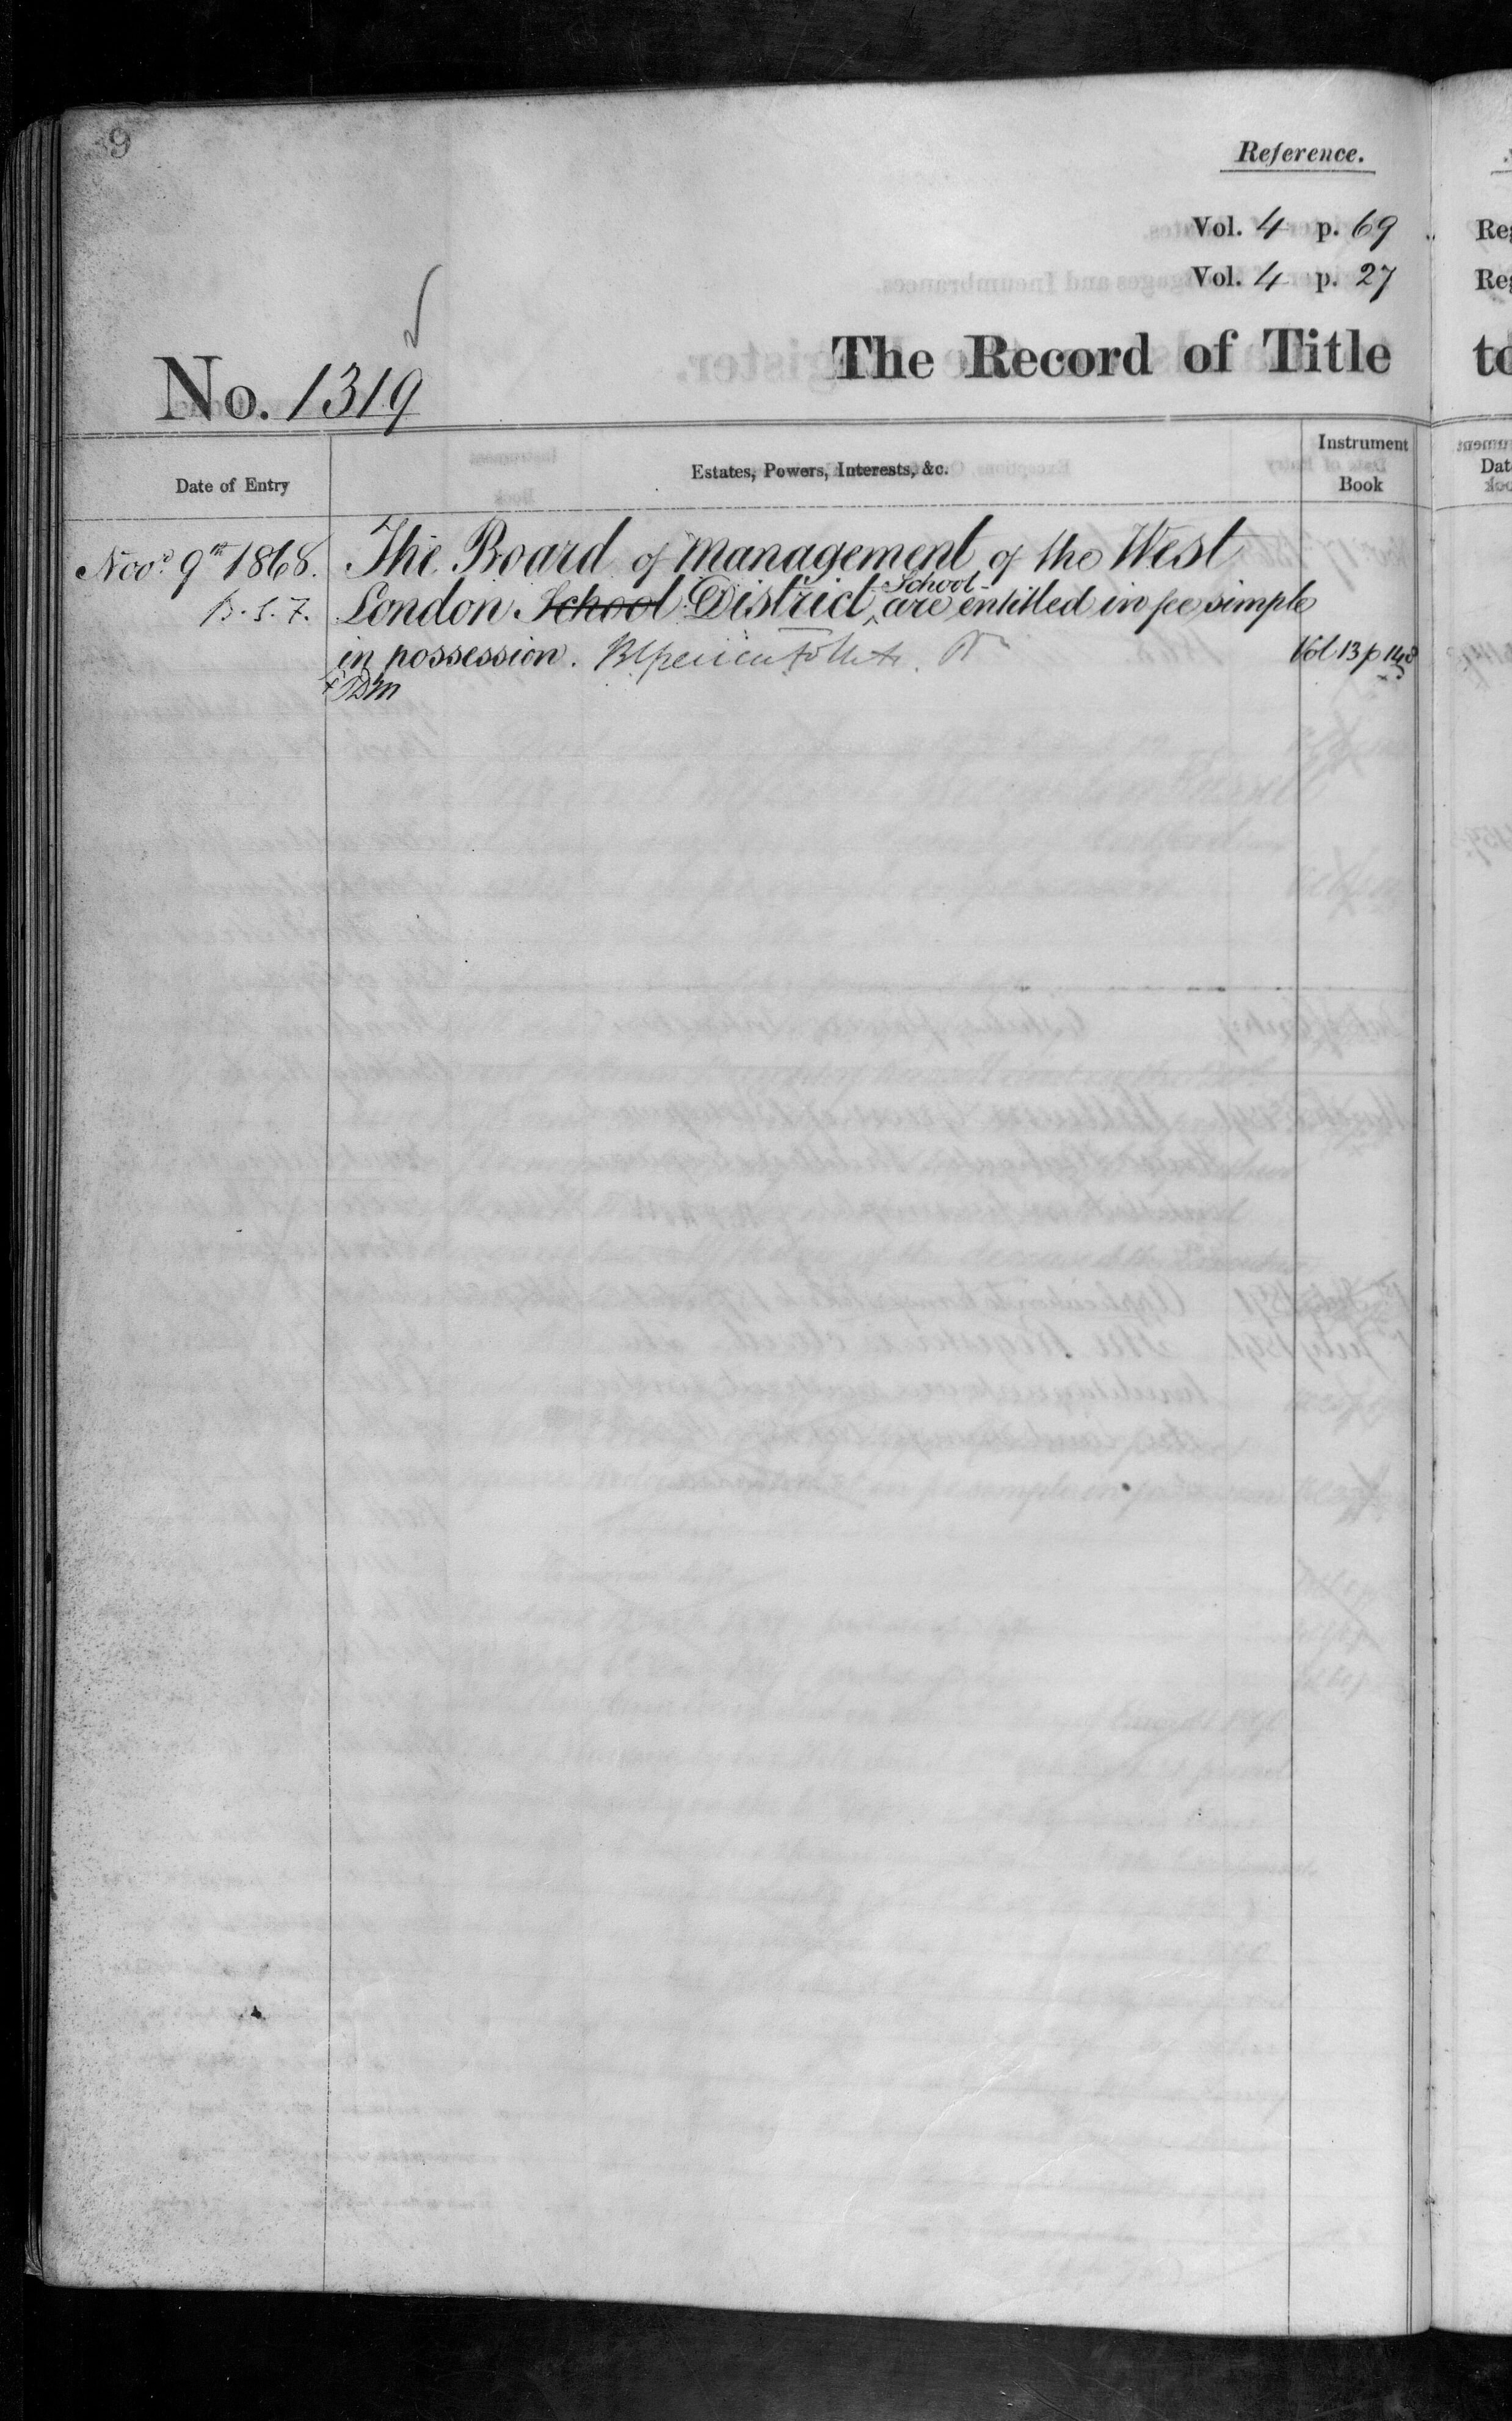 9
Reference.
Vol. 4 p. 69
Vol. 4 p. 27
No. 1319
The Record of Title
Date of Entry
Estates, Powers, Interests, &c.
Instrument Book
Novr 9th 1868. The Board of Management of the West
London School District School are entitled in fee simple
in possession. Vol 13 p
Reg
Reg
to
Dat